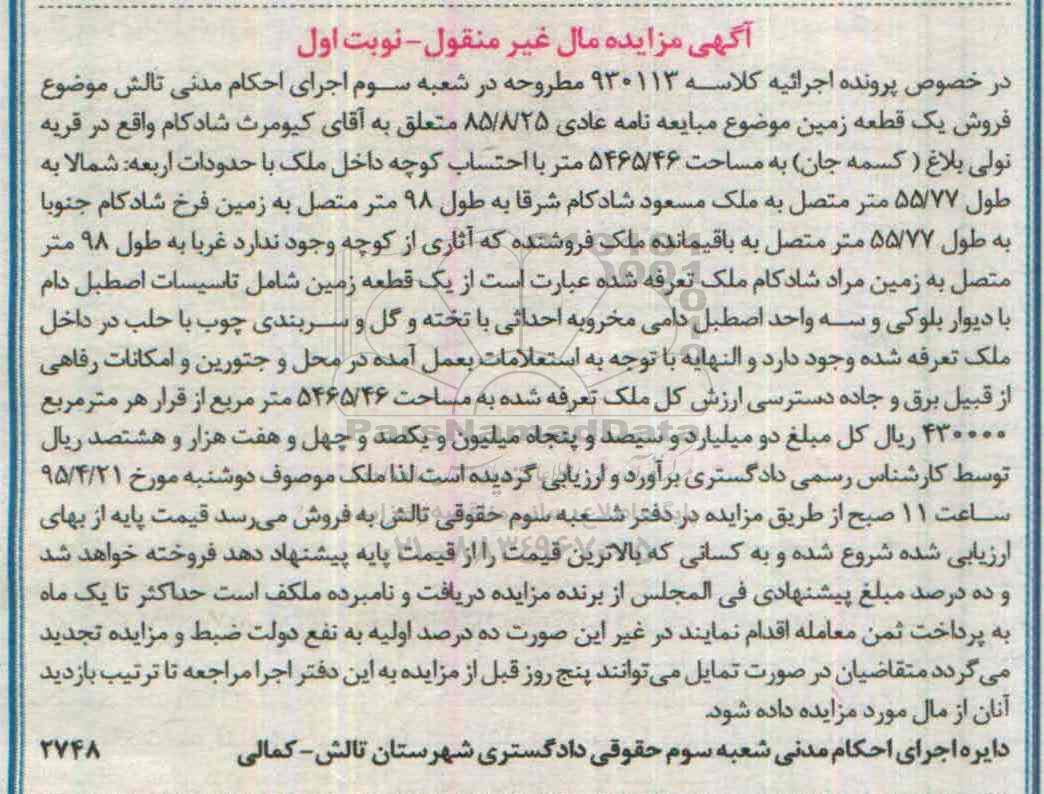 آگهی مزایده مال غیر منقول-نوبت اول
در خصوص پرونده اجرائیه کلاسه ۹۳۰۱۱۳ مطروحه در شعبه سوم اجرای احکام مدنی تالش موضوع
فروش یک قطعه زمین موضوع مبایعه نامه عادی ۸۵/۸/۲۵ متعلق به آقای کیومرث شادکام واقع در قریه
نولی بلاغ ( کسمه جان) به مساحت ۵۴۶۵/۴۶ متر با احتساب کوچه داخل ملک با حدودات اربعه: شمالا به
طول ۵۵/۷۷ متر متصل به ملک مسعود شادکام شرقا به طول ۹۸ متر متصل به زمین فرخ شادکام جنوبا
به طول ۵۵/۷۷ متر متصل به باقیمانده ملک فروشنده که آثاری از کوچه وجود ندارد غربا به طول ۹۸ متر
متصل به زمین مراد شادکام ملک تعرفه شده عبارت است از یک قطعه زمین شامل تاسیسات اصطبل دام
با دیوار بلوکی و سه واحد اصطبل دامی مخروبه احداثی با تخته و گل و سربندی چوب با حلب در داخل
ملک تعرفه شده وجود دارد و النهایه با توجه به استعلامات بعمل آمده در محل و جتورین و امکانات رفاهی
از قبیل برق و جاده دسترسی ارزش کل ملک تعرفه شده به مساحت ۵۴۶۵/۴۶ متر مربع از قرار هر مترمربع
۴۳۰۰۰۰ ریال کل مبلغ دو میلیارد و سیصد و پنجاه میلیون و یکصد و چهل و هفت هزار و هشتصد ریال
توسط کارشناس رسمی دادگستری برآورد و ارزیابی گردیده است لذا ملک موصوف دوشنبه مورخ ۹۵/۴/۲۱
ساعت ۱۱ صبح از طریق مزایده در دفتر شعبه سوم حقوقی تالش به فروش می‌رسد قیمت پایه از بهای
ارزیابی شده شروع شده و به کسانی که بالاترین قیمت را از قیمت پایه پیشنهاد دهد فروخته خواهد شد
و ده درصد مبلغ پیشنهادی فی المجلس از برنده مزایده دریافت و نامبرده ملکف است حداکثر تا یک ماه
به پرداخت ثمن معامله اقدام نمایند در غیر این صورت ده درصد اولیه به نفع دولت ضبط و مزایده تجدید
می‌گردد متقاضیان در صورت تمایل می‌توانند پنج روز قبل از مزایده به این دفتر اجرا مراجعه تا ترتیب بازدید
آنان از مال مورد مزایده داده شود.
دایره اجرای احکام مدنی شعبه سوم حقوقی دادگستری شهرستان تالش-کمالی ۲۷۴۸
ParsNamadData